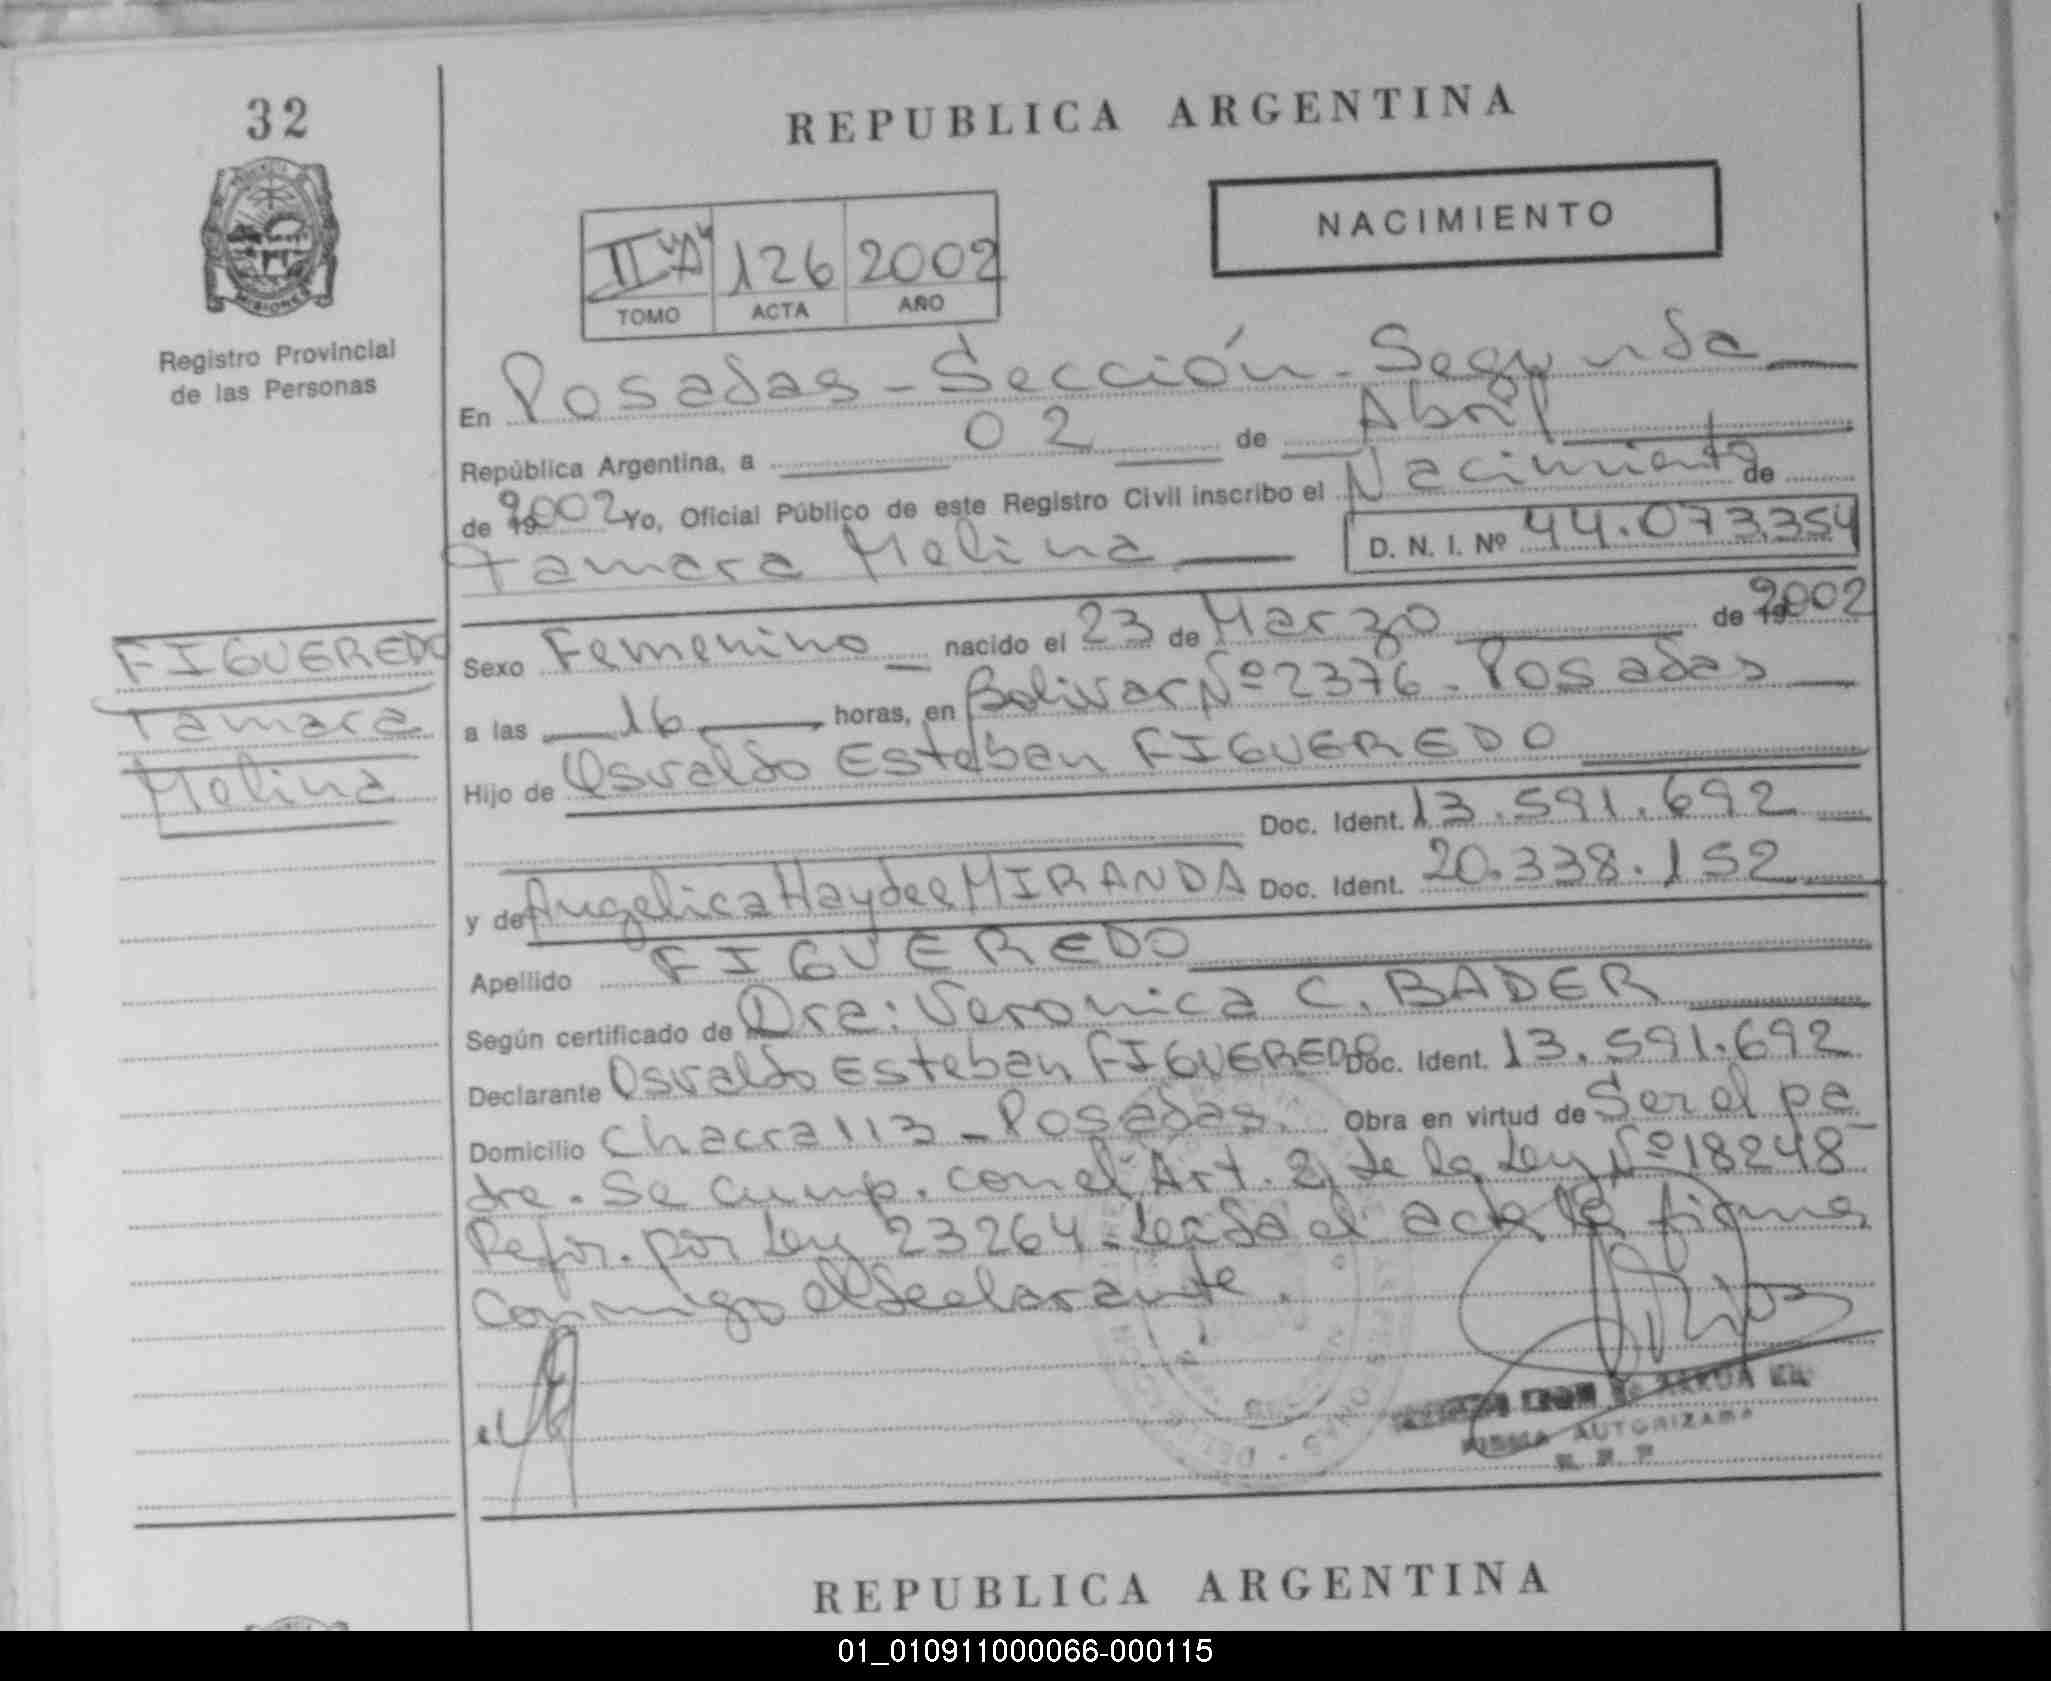 32
REPUBLICA ARGENTINA
NACIMIENTO
II "A" 126 2002
TOMO ACTA AÑO
MISIONES
Registro Provincial
de las Personas
En Posadas - Sección - Segunda
República Argentina, a 02 de Abril
de 2002 Yo, Oficial Público de este Registro Civil inscribo el Nacimiento de
Tamara Melina
D. N. I. Nº 44.073.354
FIGUEREDO
Tamara
Melina
Sexo Femenino nacido el 23 de Marzo de 2002
a las 16 horas, en Bolivar Nº 2376 - Posadas
Hijo de Osvaldo Esteban FIGUEREDO
Doc. Ident. 13.591.692
y de Angelica Haydee MIRANDA Doc. Ident. 20.338.152
Apellido FIGUEREDO
Según certificado de Dra: Veronica C. BADER
Declarante Osvaldo Esteban FIGUEREDO Doc. Ident. 13.591.692
Domicilio Chacra 113 - Posadas. Obra en virtud de Ser el pa
dre. Se cump. con el Art. 2, de la Ley Nº 18248
Refor. por Ley 23264. Leida el acta la firma
Conmigo el declarante.
FIRMA AUTORIZADA
REPUBLICA ARGENTINA
01_010911000066-000115